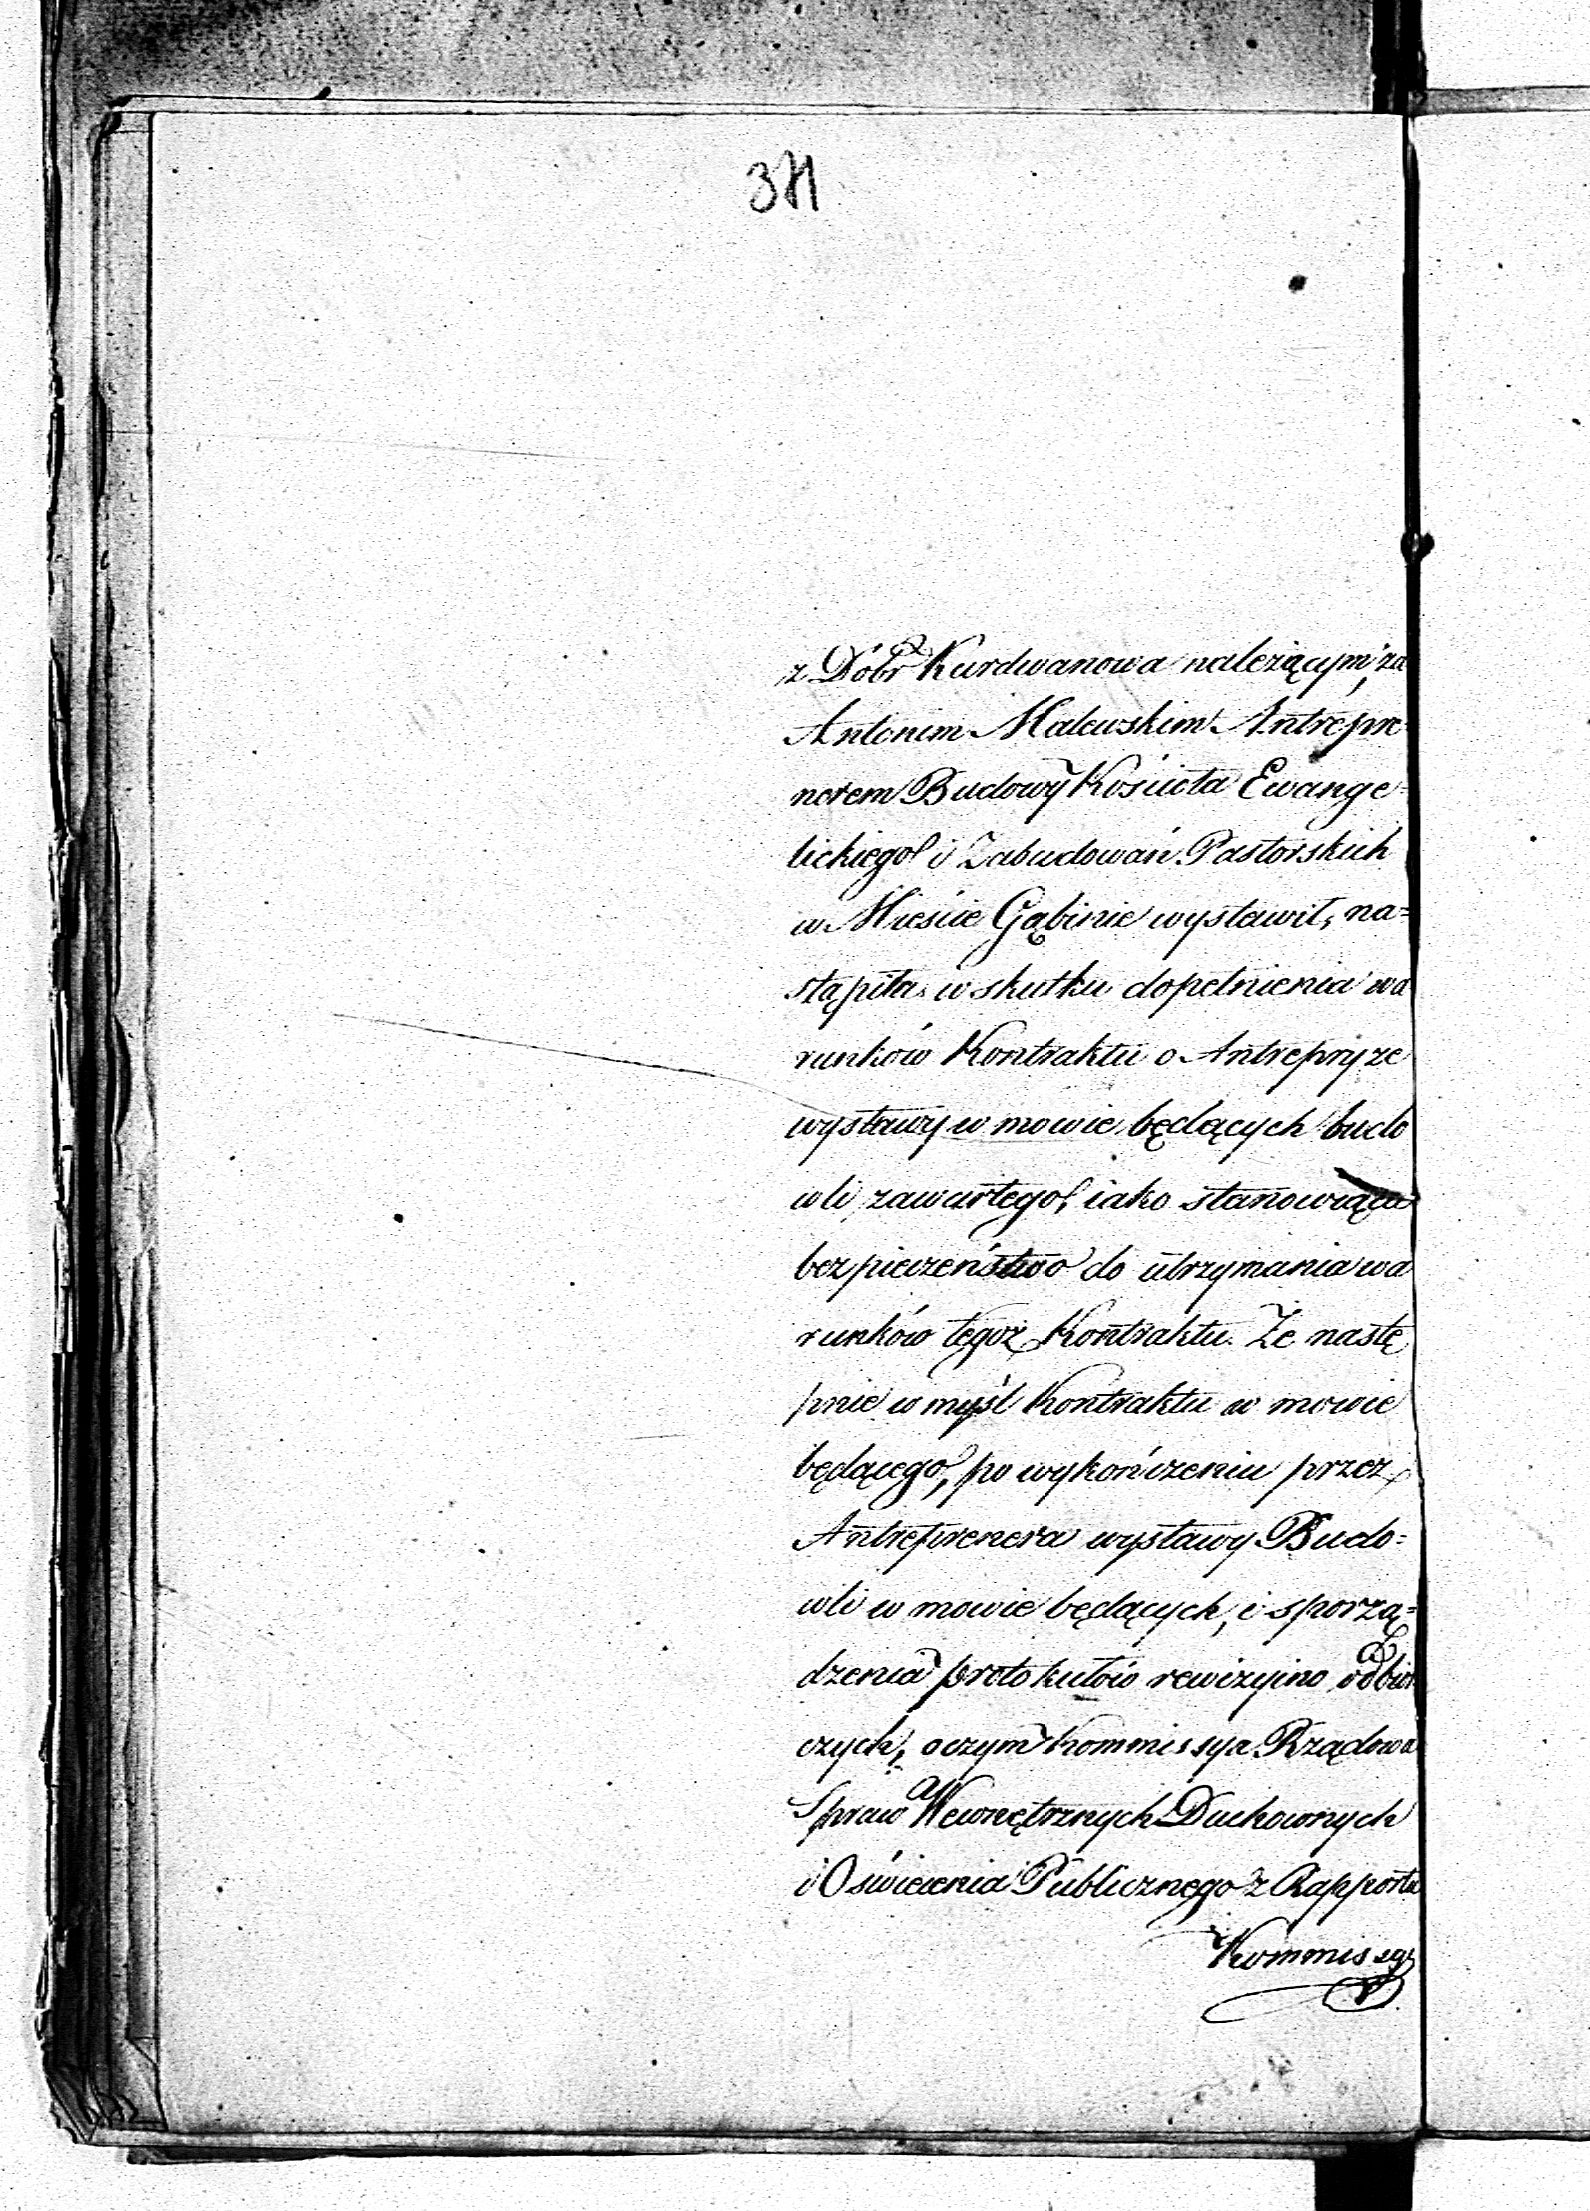 371
z Dóbr Kurdwanowa należącym, za
Antonim Malewskim Antrepre
nerem Budowy Kościoła Ewange-
lickiego i Zabudowań Pastorskich
w Mieście Gąbinie wystawił, na=
stąpiła w skutku dopełnienia wa
runków Kontraktu o Antrepryze
wystawy w mowie będących budo
wli zawartego, iako stanowiąca
bezpieczeństwo do utrzymania wa
runków tegoż Kontraktu. Że nastę
pnie w myśl Kontraktu w mowie
będącego, po wykończeniu przez
Antreprenera wystawy Budo=
wli w mowie będących, i sporzą=
dzenia protokułów rewizyino odbior
czych, o czym Kommissya Rządowa
Spraw Wewnętrznych Duchownych
i Oświecenia Publicznego z Rapportu
Kommissyi